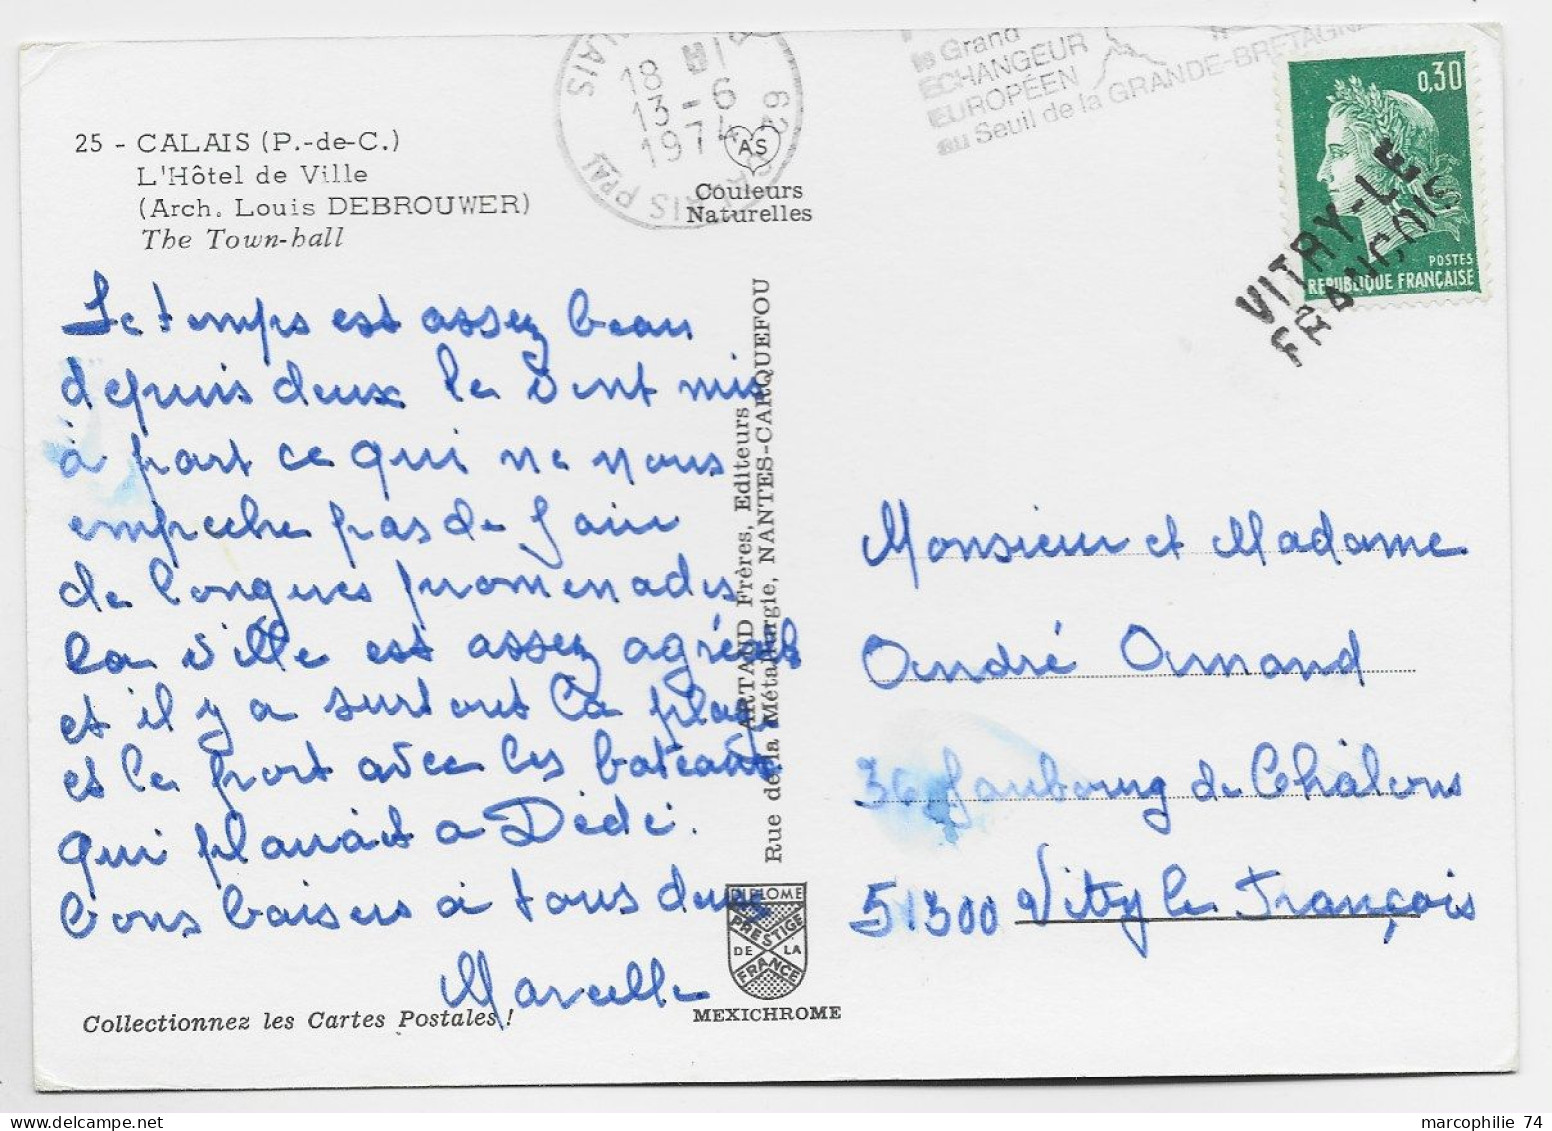 25 - CALAIS (P.-de-C.)
L'Hôtel de Ville
(Arch. Louis DEBROUWER)
The Town-hall
CALAIS PPAL
62
18 H
13-6
1974
AS
Couleurs
Naturelles
le Grand
ECHANGEUR
EUROPÉEN
au Seuil de la GRANDE-BRETAGNE
0,30
POSTES
REPUBLIQUE FRANÇAISE
VITRY-LE
FRANÇOIS
Le temps est assez beau
depuis deux le vent mis
à part ce qui ne nous
empeche pas de faire
de longues promenades
la ville est assez agréable
et il y a surtout la plage
et le port avec les bateaux
qui plairait a Dédé.
bons baisers a tous deux
Marcelle
ARTAUD Frères, Editeurs
Rue de la Métallurgie, NANTES-CARQUEFOU
Monsieur et Madame
André Amand
36 faubourg de Châlons
51300 Vitry le François
DIPLOME
PRESTIGE
DE LA
FRANCE
MEXICHROME
Collectionnez les Cartes Postales !
marcophilie 74